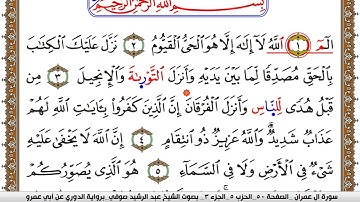 بِسْمِ اللَّهِ الرَّحْمَٰنِ الرَّحِيمِ
الٓمٓ ١ اللَّهُ لَا إِلَٰهَ إِلَّا هُوَ الْحَيُّ الْقَيُّومُ ٢ نَزَّلَ عَلَيْكَ الْكِتَابَ
بِالْحَقِّ مُصَدِّقًا لِمَا بَيْنَ يَدَيْهِ وَأَنزَلَ التَّوْرَىٰةَ وَالْإِنجِيلَ ٣ مِن
قَبْلُ هُدًى لِلنَّاسِ وَأَنزَلَ الْفُرْقَانَ إِنَّ الَّذِينَ كَفَرُوا بِـَٔايَاتِ اللَّهِ لَهُمْ
عَذَابٌ شَدِيدٌ وَاللَّهُ عَزِيزٌ ذُو انتِقَامٍ ٤ إِنَّ اللَّهَ لَا يَخْفَىٰ عَلَيْهِ
شَيْءٌ فِي الْأَرْضِ وَلَا فِي السَّمَاءِ ٥ هُوَ الَّذِي يُصَوِّرُكُمْ
سورة آل عمران . الصفحة ٥٠ . الحزب ٥ . الجزء ٣ . بصوت الشيخ عبد الرشيد صوفي . برواية الدوري عن أبي عمرو